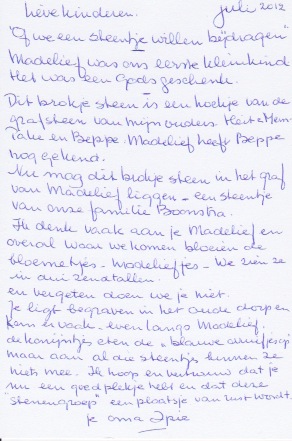 lieve kinderen. juli 2012
"Of we een steentje willen bijdragen"
Madelief was ons eerste kleinkind
Het was een Gods geschenk.
Dit brokje steen is een hoekje van de
grafsteen van mijn ouders Heit + Mem
Pake en Beppe. Madelief heeft Beppe
nog gekend.
Nu mag dit brokje steen in het graf
van Madelief liggen - een steentje
van onze familie Boonstra.
Ik denk vaak aan je Madelief en
overal waar we komen bloeien de
bloemetjes - Madeliefjes - We zien ze
in duizendtallen.
en vergeten doen we je niet.
Je ligt begraven in het oude dorp en
kom er vaak - even langs Madelief,
de konijntjes eten de "blauwe druifjes" op
maar aan al die steentjes kunnen ze
niets mee. Ik hoop en vertrouw dat je
nu een goed plekje hebt en dat deze
"stenengroep" een plaatsje van rust wordt.
je oma